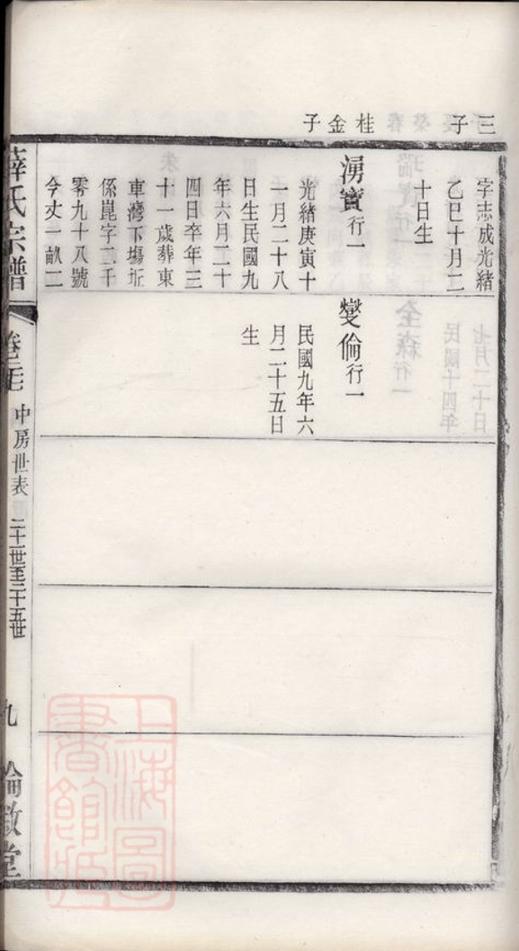 三子
桂金子
字志成光緒
乙巳十月二
十日生
湧寶行一
光緒庚寅十
一月二十八
日生民國九
年六月二十
四日卒年三
十一歲葬東
車灣下場坵
係崑字二千
零九十八號
今丈一畝二
燮倫行一
民國九年六
月二十五日
生
薛氏宗譜
中房世表
二十一世至二十五世
九
倫敘堂
上海圖書館藏